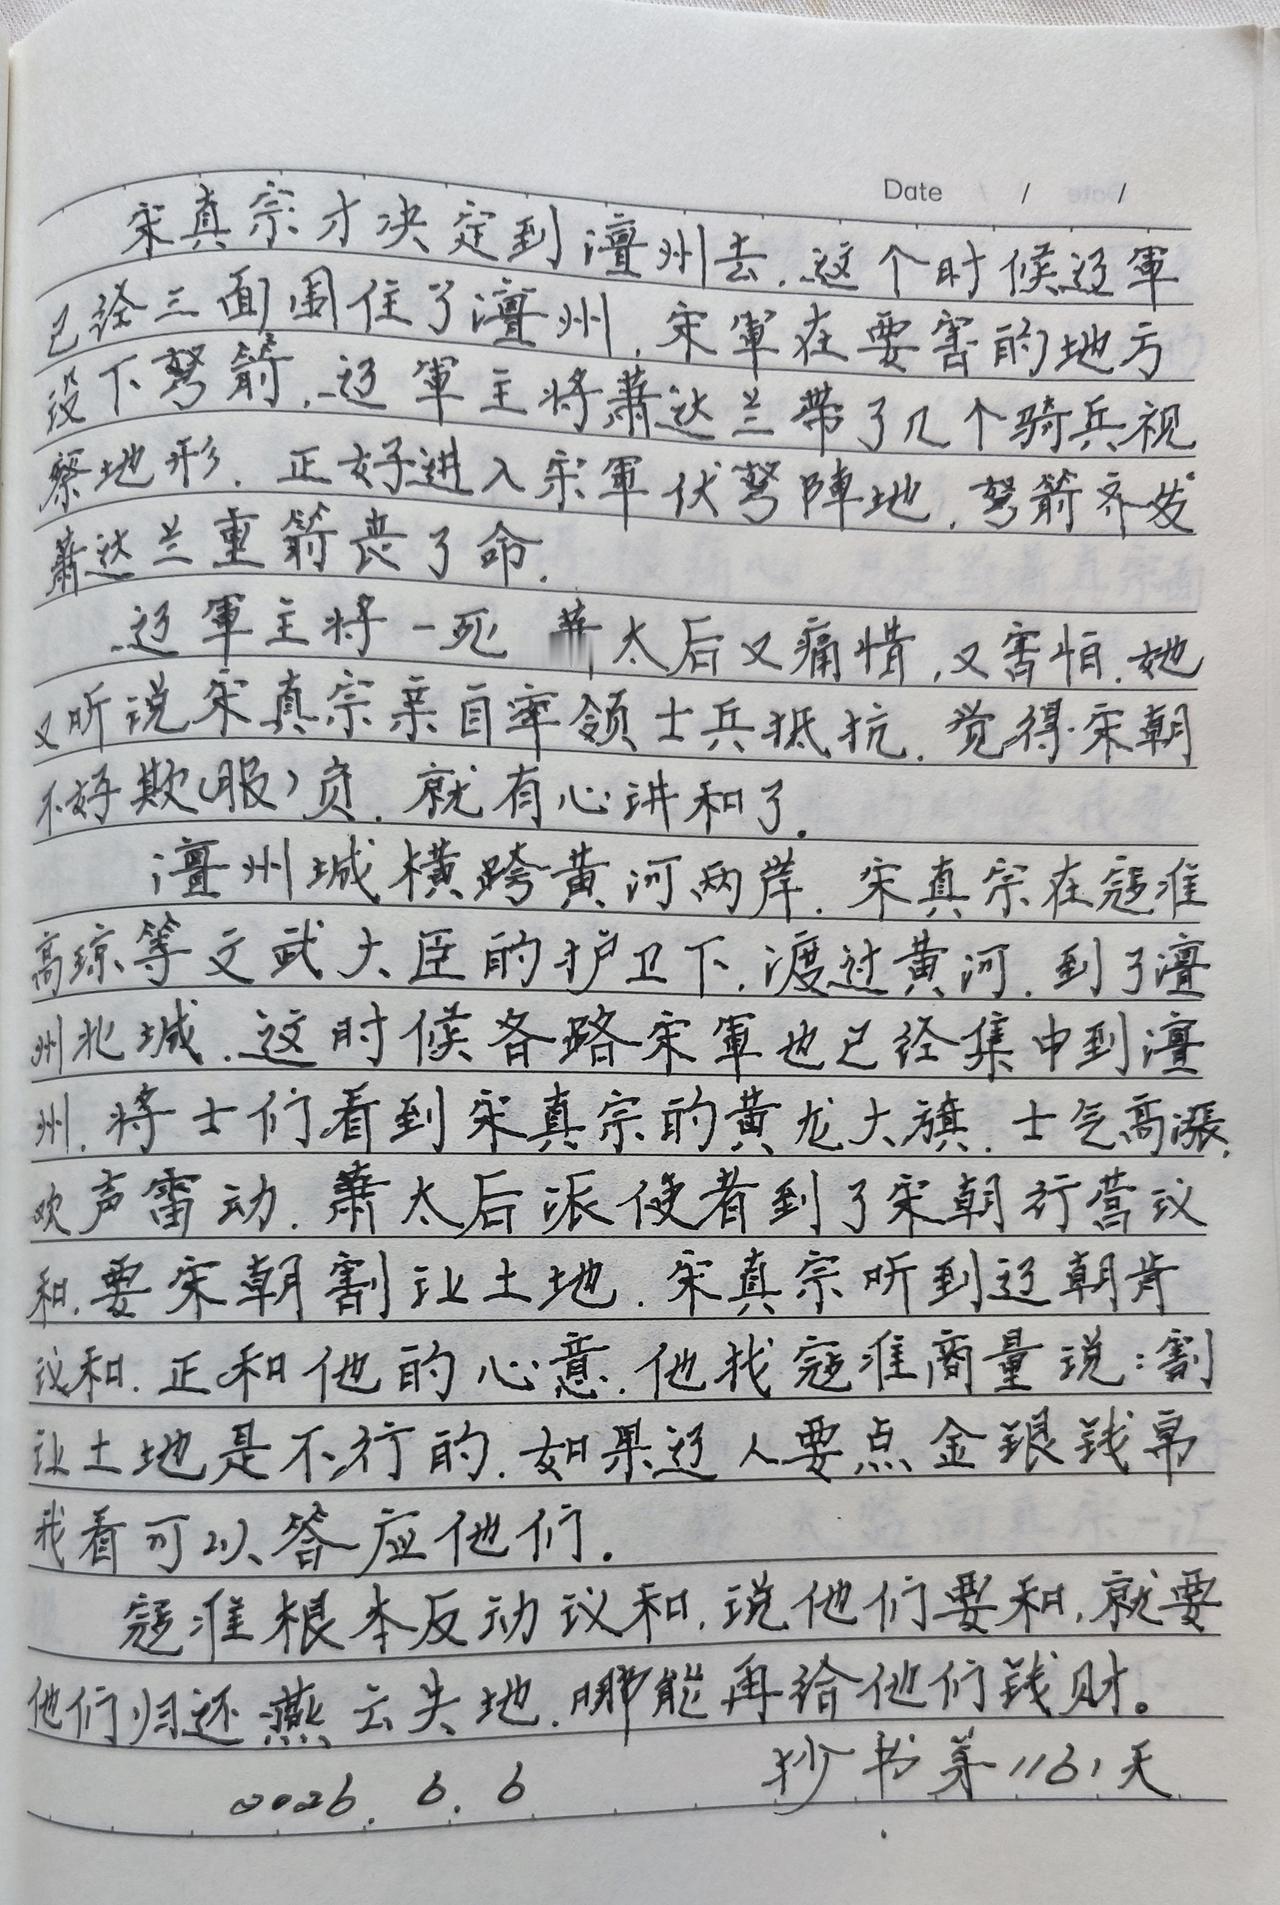 Date / /
宋真宗才决定到澶州去.这个时候辽軍
已经三面围住了澶州.宋軍在要害的地方
设下弩箭.辽軍主将萧达兰带了几个骑兵视
察地形.正好进入宋軍伏弩陣地.弩箭齐发
萧达兰重箭丧了命.
辽軍主将一死 萧太后又痛惜,又害怕.她
又听说宋真宗亲自率领士兵抵抗.觉得宋朝
不好欺(服)负.就有心讲和了.
澶州城横跨黄河两岸.宋真宗在寇准
高琼等文武大臣的护卫下.渡过黄河.到了澶
州北城.这时候各路宋軍也已经集中到澶
州.将士们看到宋真宗的黄龙大旗.士气高涨.
吹声雷动.萧太后派使者到了宋朝行营议
和.要宋朝割让土地.宋真宗听到辽朝肯
议和.正和他的心意.他找寇准商量说:割
让土地是不行的.如果辽人要点金银钱帛
我看可以答应他们.
寇准根本反动议和.说他们要和.就要
他们归还燕云失地.哪能再给他们钱财。
2026.6.6 抄书第1161天